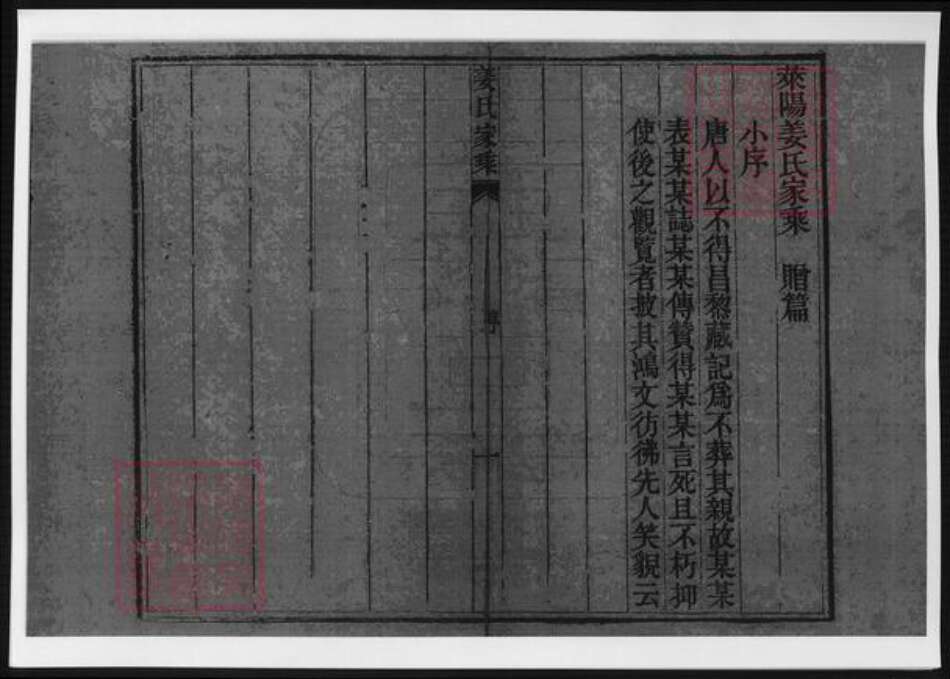 萊陽姜氏家乘 贈篇
小序
唐人以不得昌黎藏記為不葬其親故某某
表某某誌某某傳贊得某某言死且不朽抑
使後之觀覧者披其鴻文彷彿先人笑貌云
姜氏家乘
一